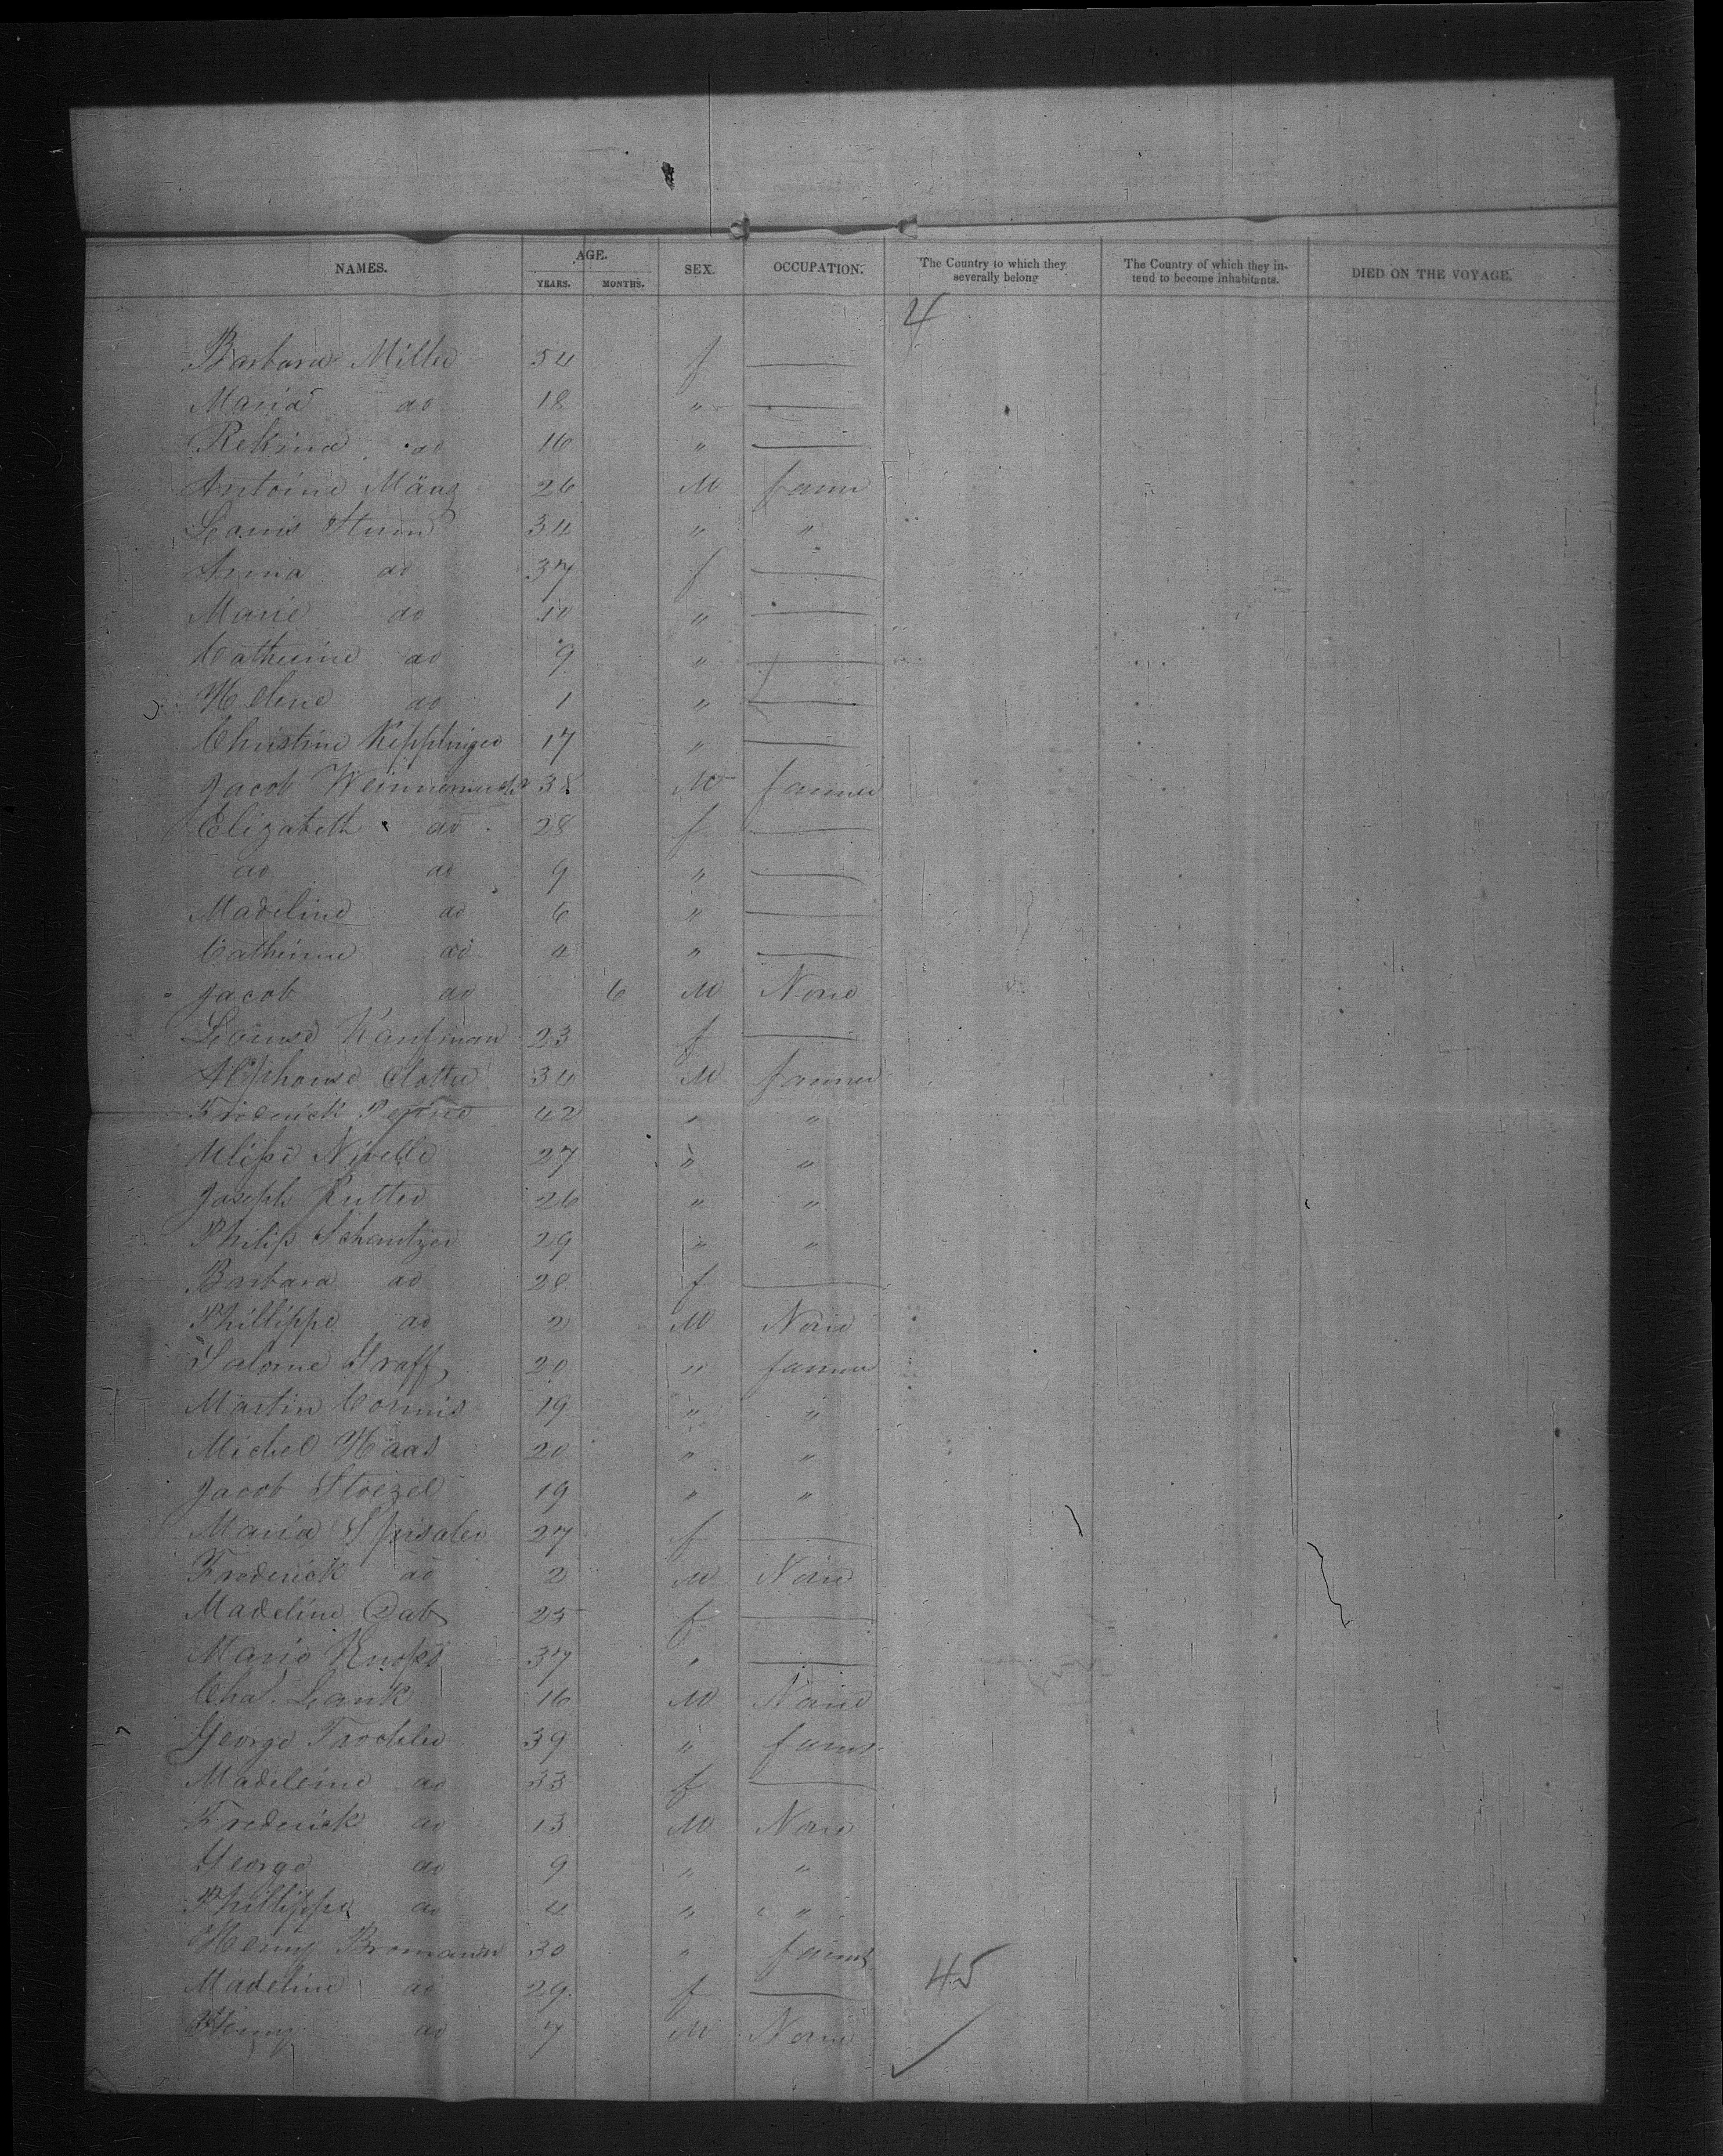 NAMES. AGE. YEARS. MONTHS. SEX. OCCUPATION. The Country to which they severally belong The Country of which they intend to become inhabitants. DIED ON THE VOYAGE.
4
Barbara Miller 54 f —
Maria do 18 " —
do 16 " —
Antoine Mäng 26 M farmer
Louis Sturm 34 " "
Anna do 37 f —
Marie do 10 " —
Catherine do 9 " —
Helene do 1 " —
Christine Kepplinger 17 " —
Jacob 38 M farmer
Elizabeth do 28 f —
do do 9 " —
Madeline do 6 " —
Catherine do 4 " —
Jacob do 6 M None
Louise Kaufman 23 f —
Alphonse Clotter 34 M farmer
Frederick 42 " "
Ulisse Nivelle 27 " "
Joseph Rutter 26 " "
Philip Schantzer 29 " "
Barbara do 28 f —
Phillippe do 2 M None
Salome Graff 20 " farmer
Martin 19 " "
Michel Haas 20 " "
Jacob Stoezel 19 " "
Maria 27 f —
Frederick do 2 M None
Madeline Dab 25 f —
Marie 37 " —
Cha. Lank 16 M None
George Trochler 39 " farmr
Madeleine do 33 f —
Frederick do 13 M None
George do 9 " "
Phillippe do 4 " "
Henry Bromann 30 " farmr
45
Madeline do 29 f —
Henny do 7 M None